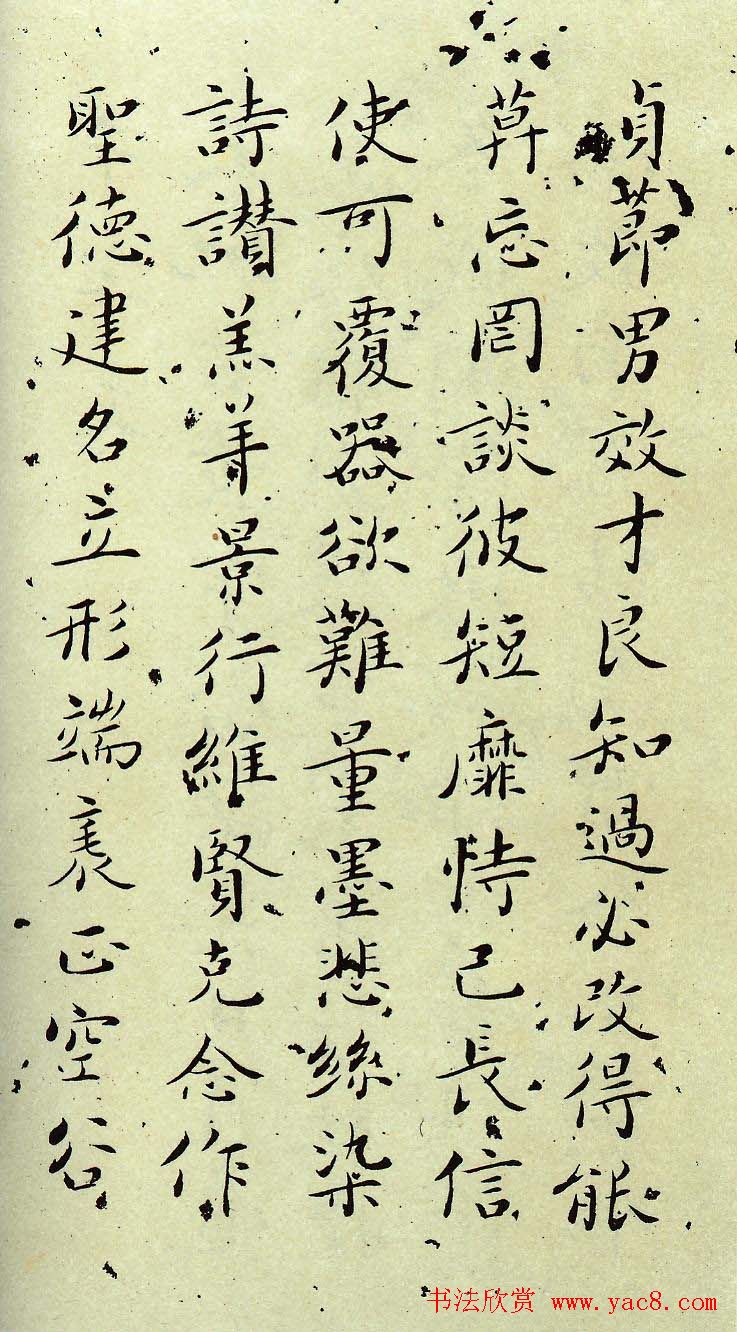 貞莭男效才良知過必改得能
莫忘罔談彼短靡恃己長信
使可覆器欲難量墨悲絲染
詩讃羔羊景行維賢克念作
聖徳建名立形端表正空谷
书法欣赏 www.yac8.com